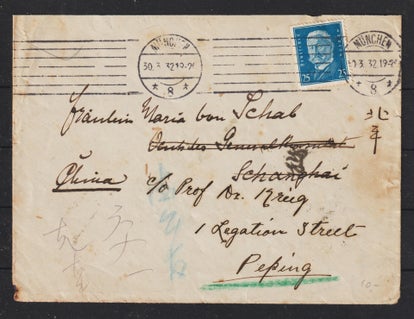 MÜNCHEN
30.3.32.19-20
* 8 *
MÜNCHEN
32.19-20
* 8 *
25 25
Fräulein Maria von Schab
Deutsches Generalkonsulat
Schanghai
China
c/o Prof Dr. Krieg
1 Legation Street
Peping
北平
10-